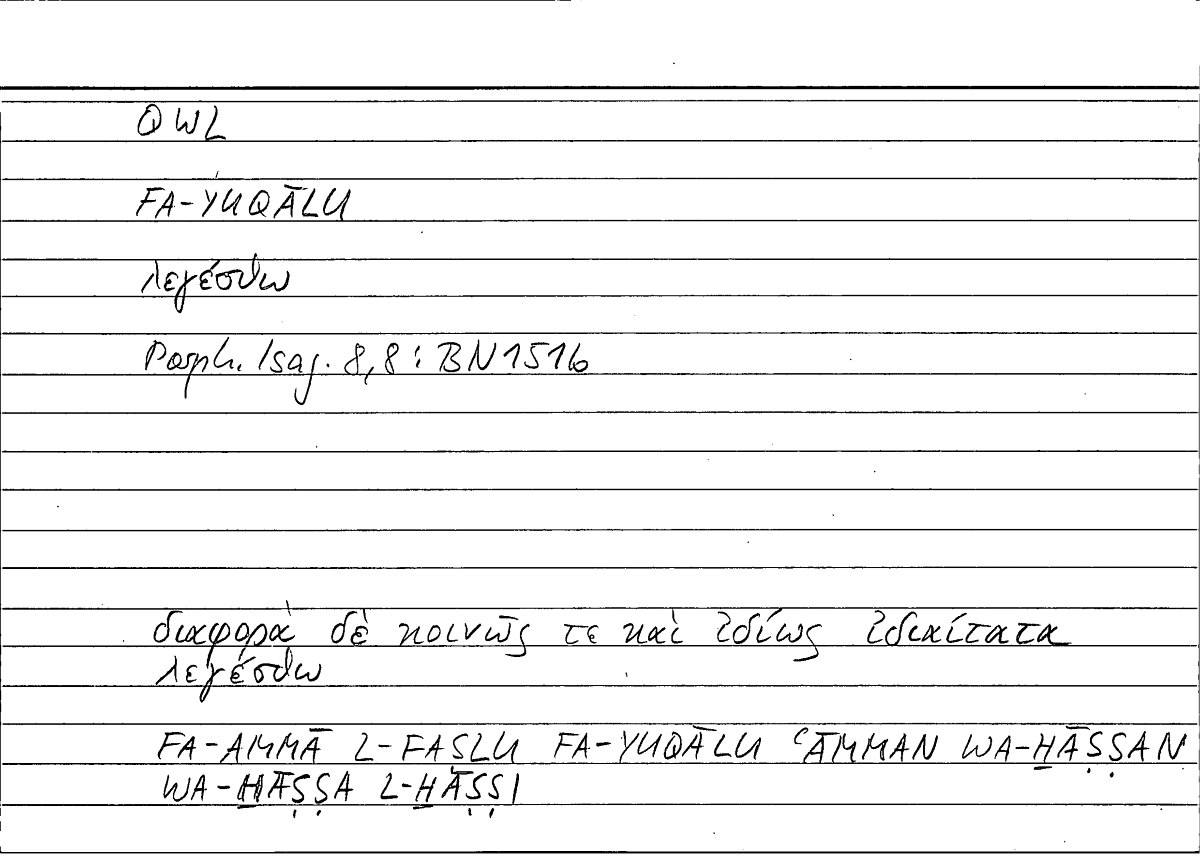 QWL
FA-YUQĀLU
λεγέσθω
Porph. Isag. 8,8 : BN 151b
διαφορὰ δὲ κοινῶς τε καὶ ἰδίως ἰδιαίτατα
λεγέσθω
FA-AMMĀ L-FAṢLU FA-YUQĀLU ʿĀMMAN WA-H̱ĀṢṢAN
WA-H̱ĀṢṢA L-H̱ĀṢṢI